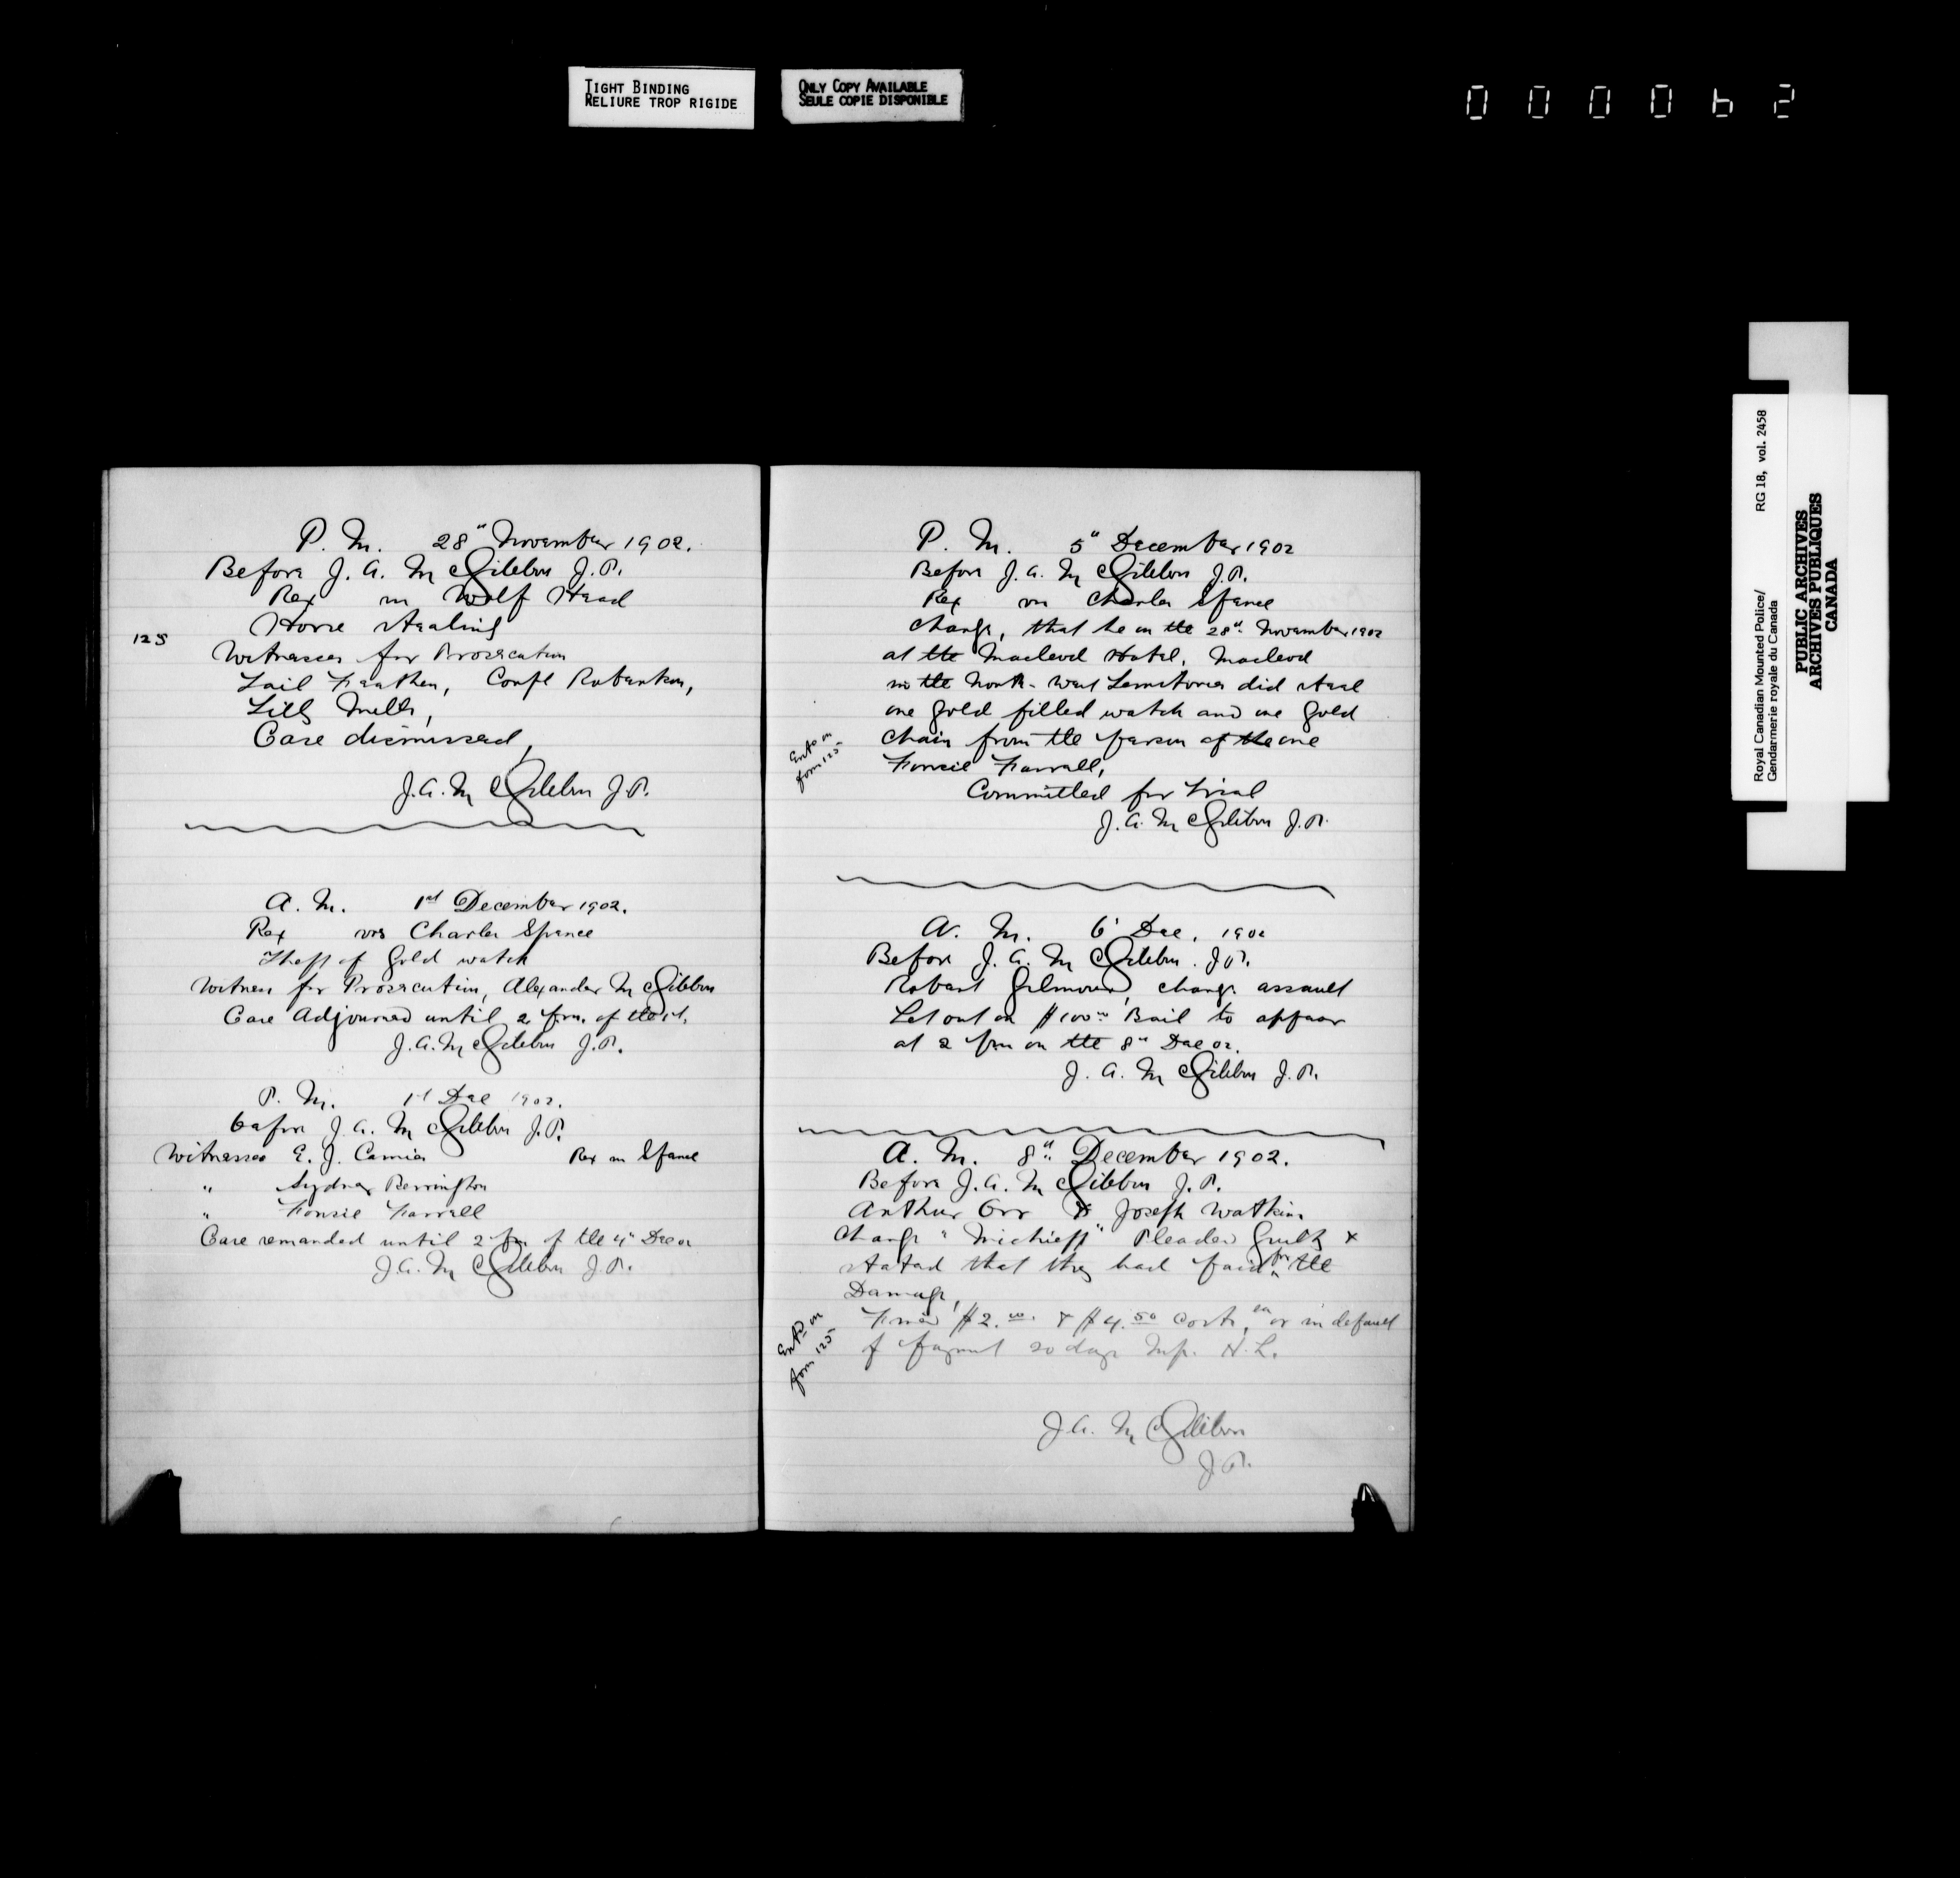 TIGHT BINDING
RELIURE TROP RIGIDE
ONLY COPY AVAILABLE
SEULE COPIE DISPONIBLE
000062
P. M. 28" November 1902.
Before J. A. McGibbon J.P.
Rex vs Wolf Head
Horse stealing
125
Witnesses for Prosecution
Tail Feathers, Const Robertson,
Lilly Mills,
Case dismissed,
J.A. McGibbon J.P.
A. M. 1st December 1902.
Rex vrs Charles Spence
Theft of Gold watch
Witness for Prosecution, Alexander McGibbon
Case Adjourned until 2 pm. of the 1st.
J.A. McGibbon J.P.
P. M. 1st Dec 1902.
before J. A. McGibbon J.P.
Witnesses E. J. Camier Rex vs Spence
" Sydney Berrington
" Fonsie Farrell
Case remanded until 2 pm of the 4" Dec 02
J.A. McGibbon J.P.
P. M. 5" December 1902
Before J. A. McGibbon J.P.
Rex vrs Charles Spence
charge, that he on the 28th November 1902
at the Macleod Hotel, Macleod
in the North-West Territories did steal
one gold filled watch and one gold
chain from the person of the one
Fonsie Farrell,
Entd on
form 125
Committed for Trial
J. A. McGibbon J.P.
A. M. 6' Dec. 1902
Before J. A. McGibbon. J.P.
Robert Gilmour, charge assault
Let out on $100 00 Bail to appear
at 2 pm on the 8" Dec 02.
J. A. McGibbon J.P.
A. M. 8th December 1902.
Before J. A. McGibbon J.P.
Arthur Orr & Joseph Watkins
Charge "Michieff" Pleaded Guilty &
stated that they had paid for the
Damage,
Fined $2.00 & $4.50 costs, ea or in default
of payment 20 days Imp. H.L.
Entd on
form 125
J.A. McGibbon
J.P.
Royal Canadian Mounted Police/ RG 18, vol. 2458
Gendarmerie royale du Canada
PUBLIC ARCHIVES
ARCHIVES PUBLIQUES
CANADA